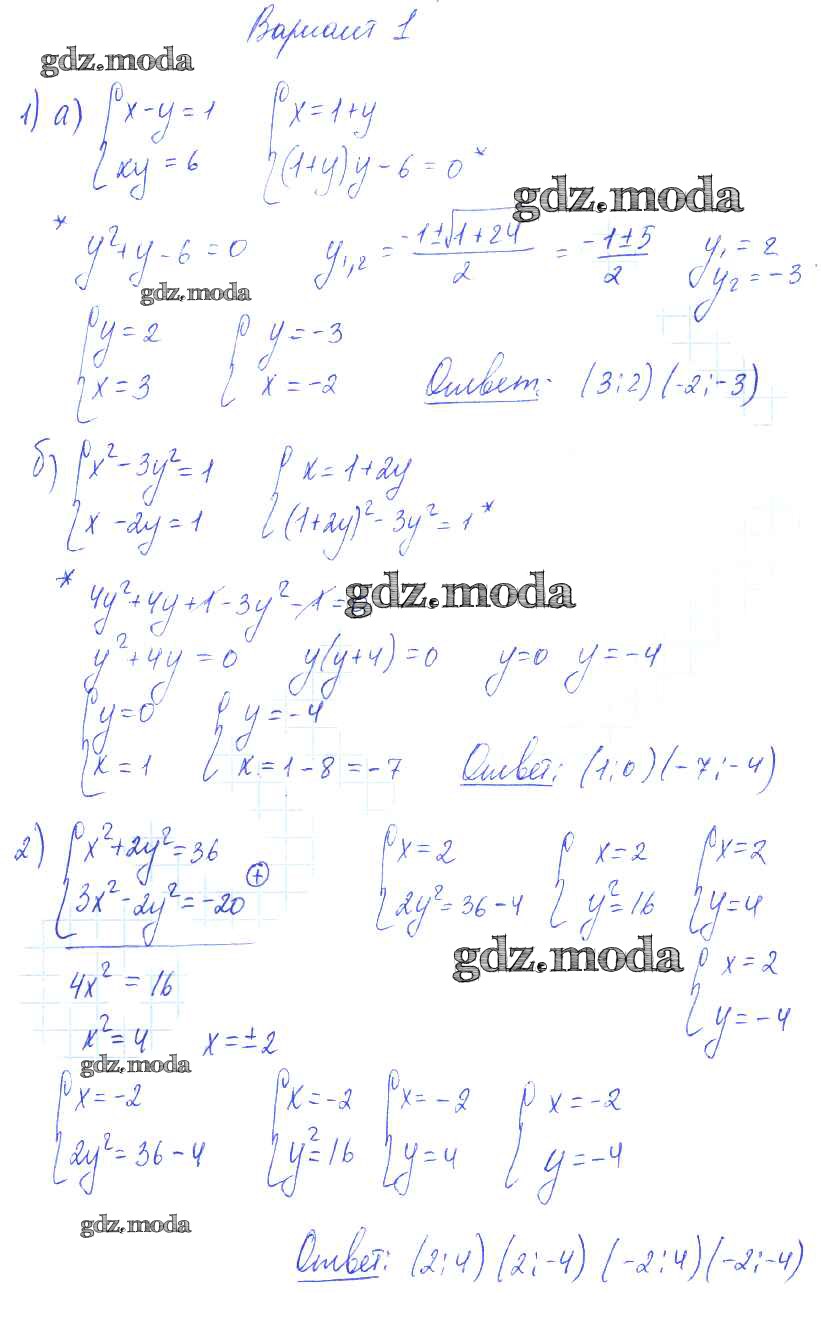 Вариант 1
gdz.moda
1) а) { x-y=1 { x=1+y
{ xy=6 { (1+y)y-6=0*
gdz.moda
* y²+y-6=0 y₁,₂ = (-1±√(1+24))/2 = (-1±5)/2 y₁=2
y₂=-3
gdz.moda
{ y=2 { y=-3
{ x=3 { x=-2 Ответ: (3;2) (-2;-3)
б) { x²-3y²=1 { x=1+2y
{ x-2y=1 { (1+2y)²-3y²=1*
* 4y²+4y+1-3y²-1= gdz.moda
y²+4y=0 y(y+4)=0 y=0 y=-4
{ y=0 { y=-4
{ x=1 { x=1-8=-7 Ответ: (1;0) (-7;-4)
2) { x²+2y²=36 { x=2 { x=2 { x=2
{ 3x²-2y²=-20 ⊕ { 2y²=36-4 { y²=16 { y=4
gdz.moda
4x²=16 { x=2
x²=4 x=±2 { y=-4
gdz.moda
{ x=-2 { x=-2 { x=-2 { x=-2
{ 2y²=36-4 { y²=16 { y=4 { y=-4
gdz.moda
Ответ: (2;4) (2;-4) (-2;4) (-2;-4)